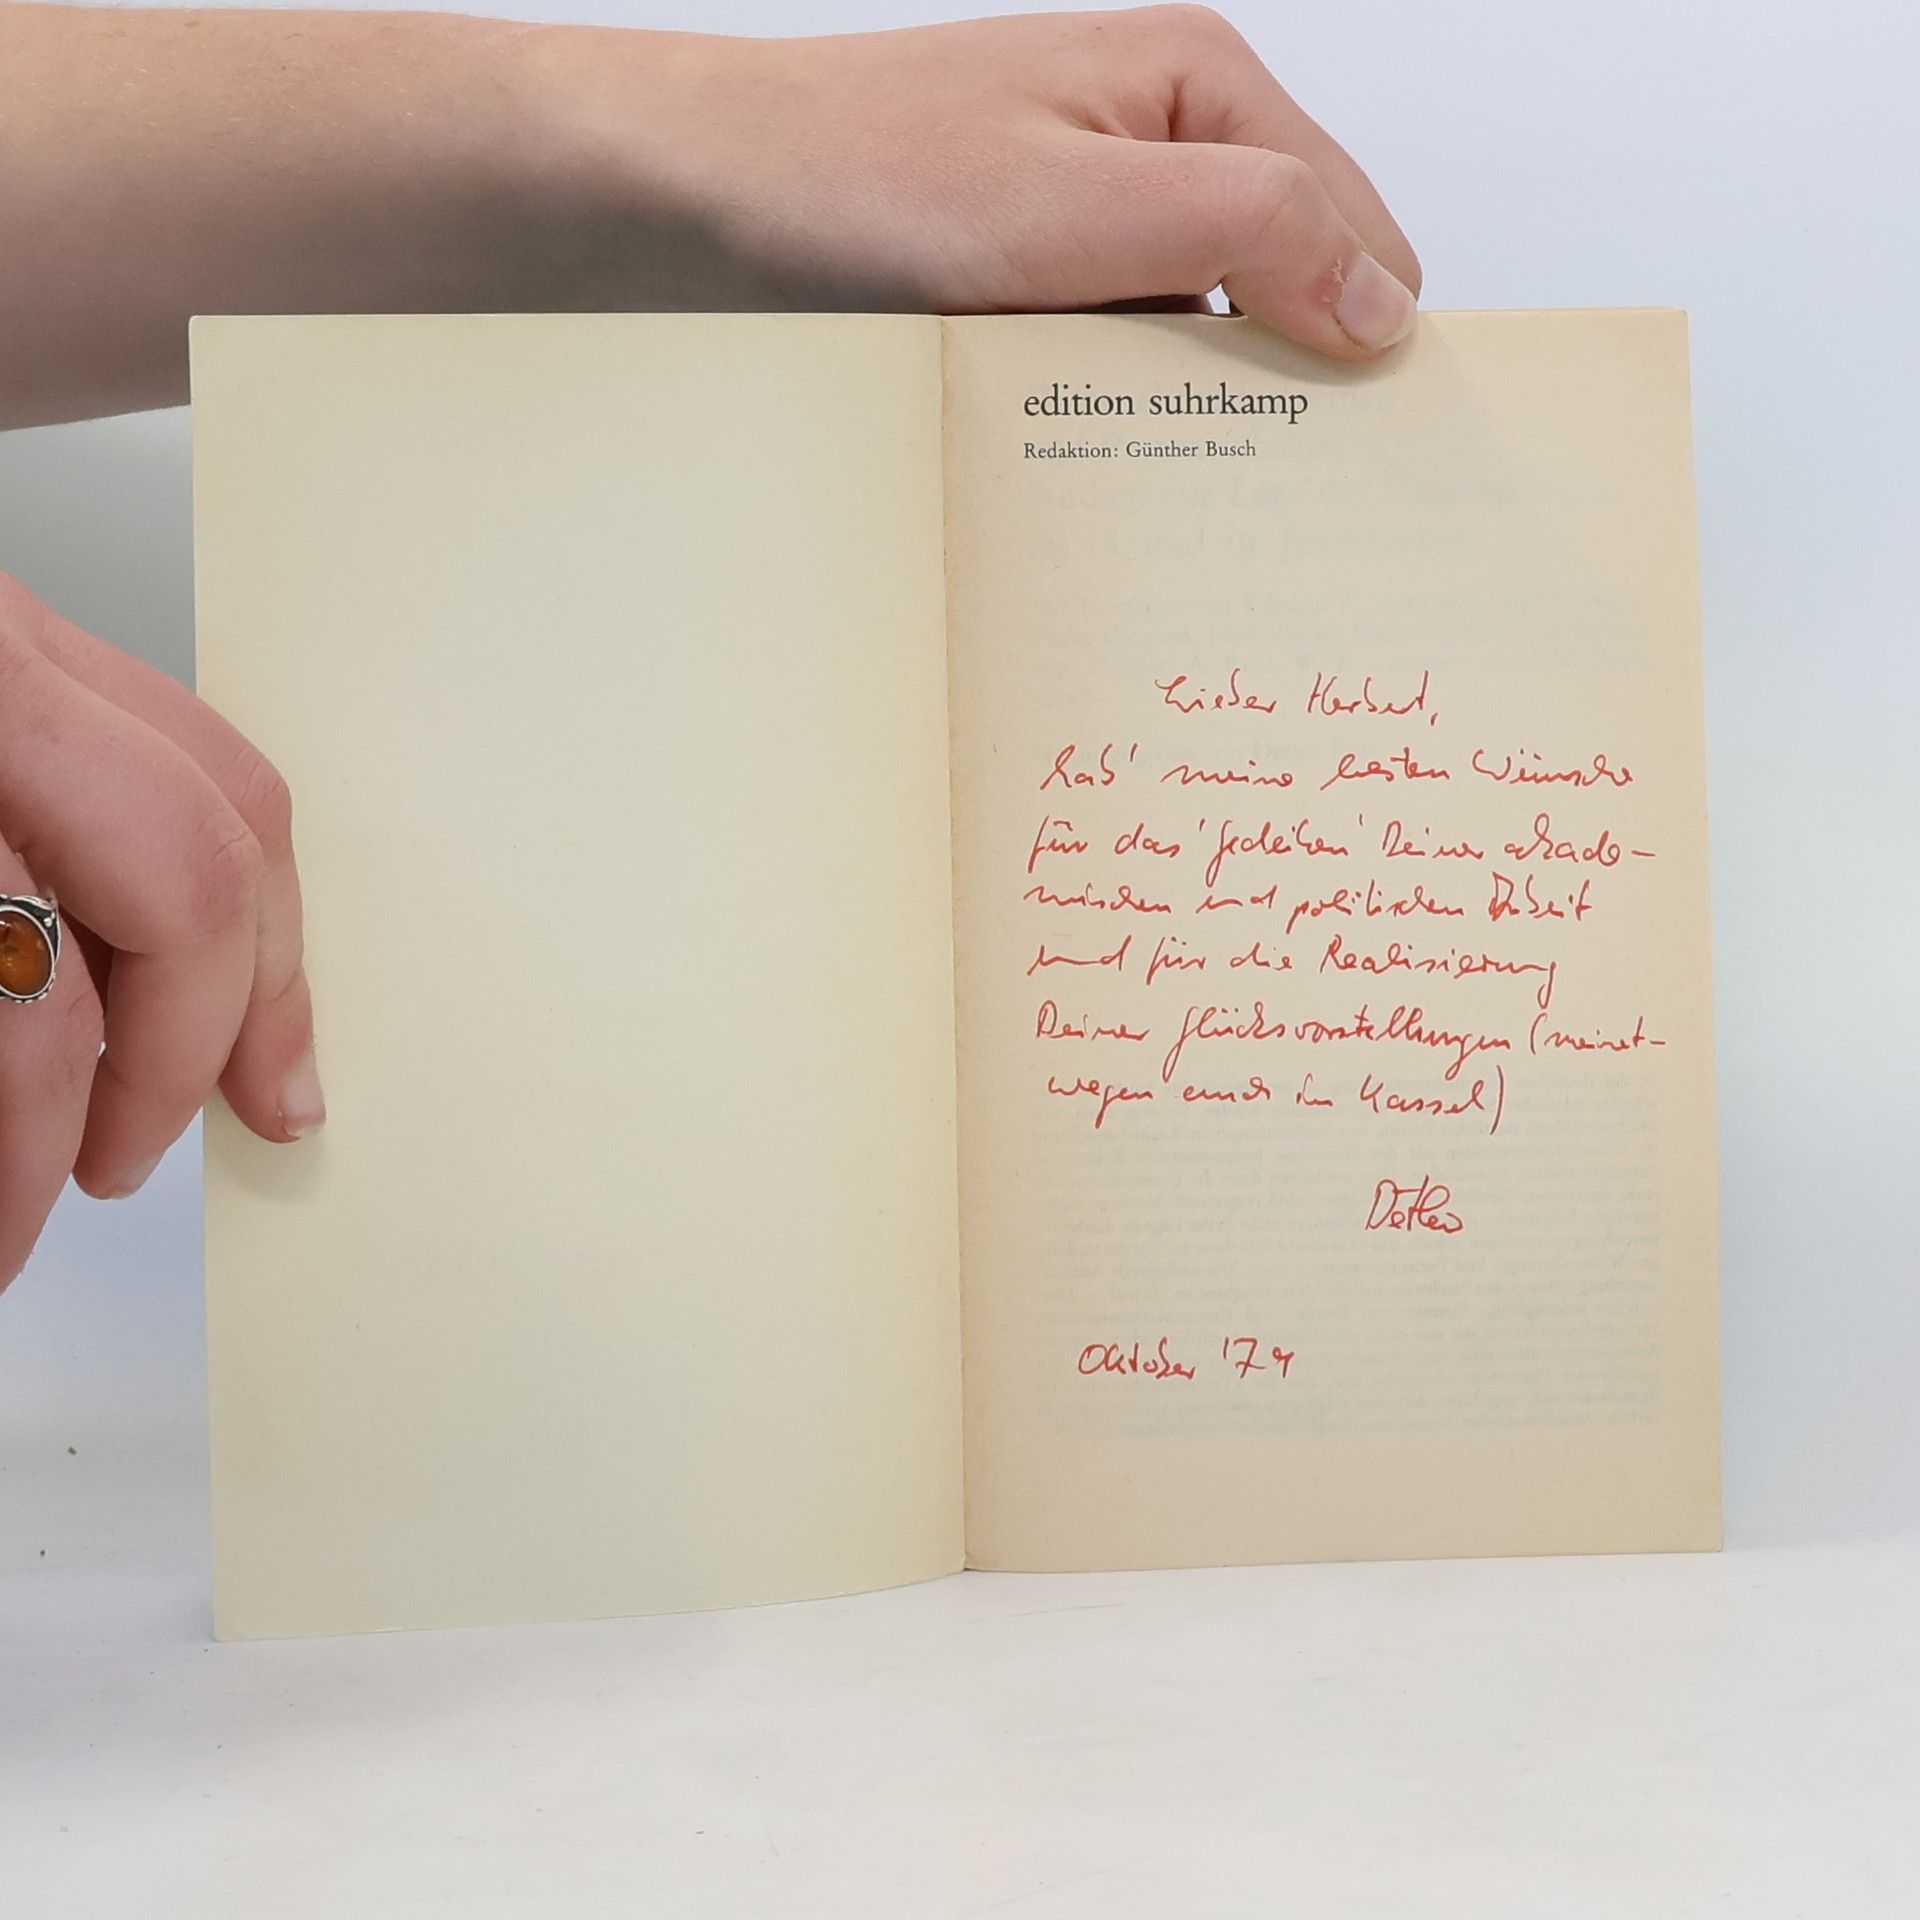 edition suhrkamp
Redaktion: Günther Busch
Lieber Herbert,
hab' meine besten Wünsche
für das 'Gedeihen' Deiner akade-
mischen und politischen Arbeit
und für die Realisierung
Deiner Glücksvorstellungen (meinet-
wegen auch in Kassel)
Detlev
Oktober '79